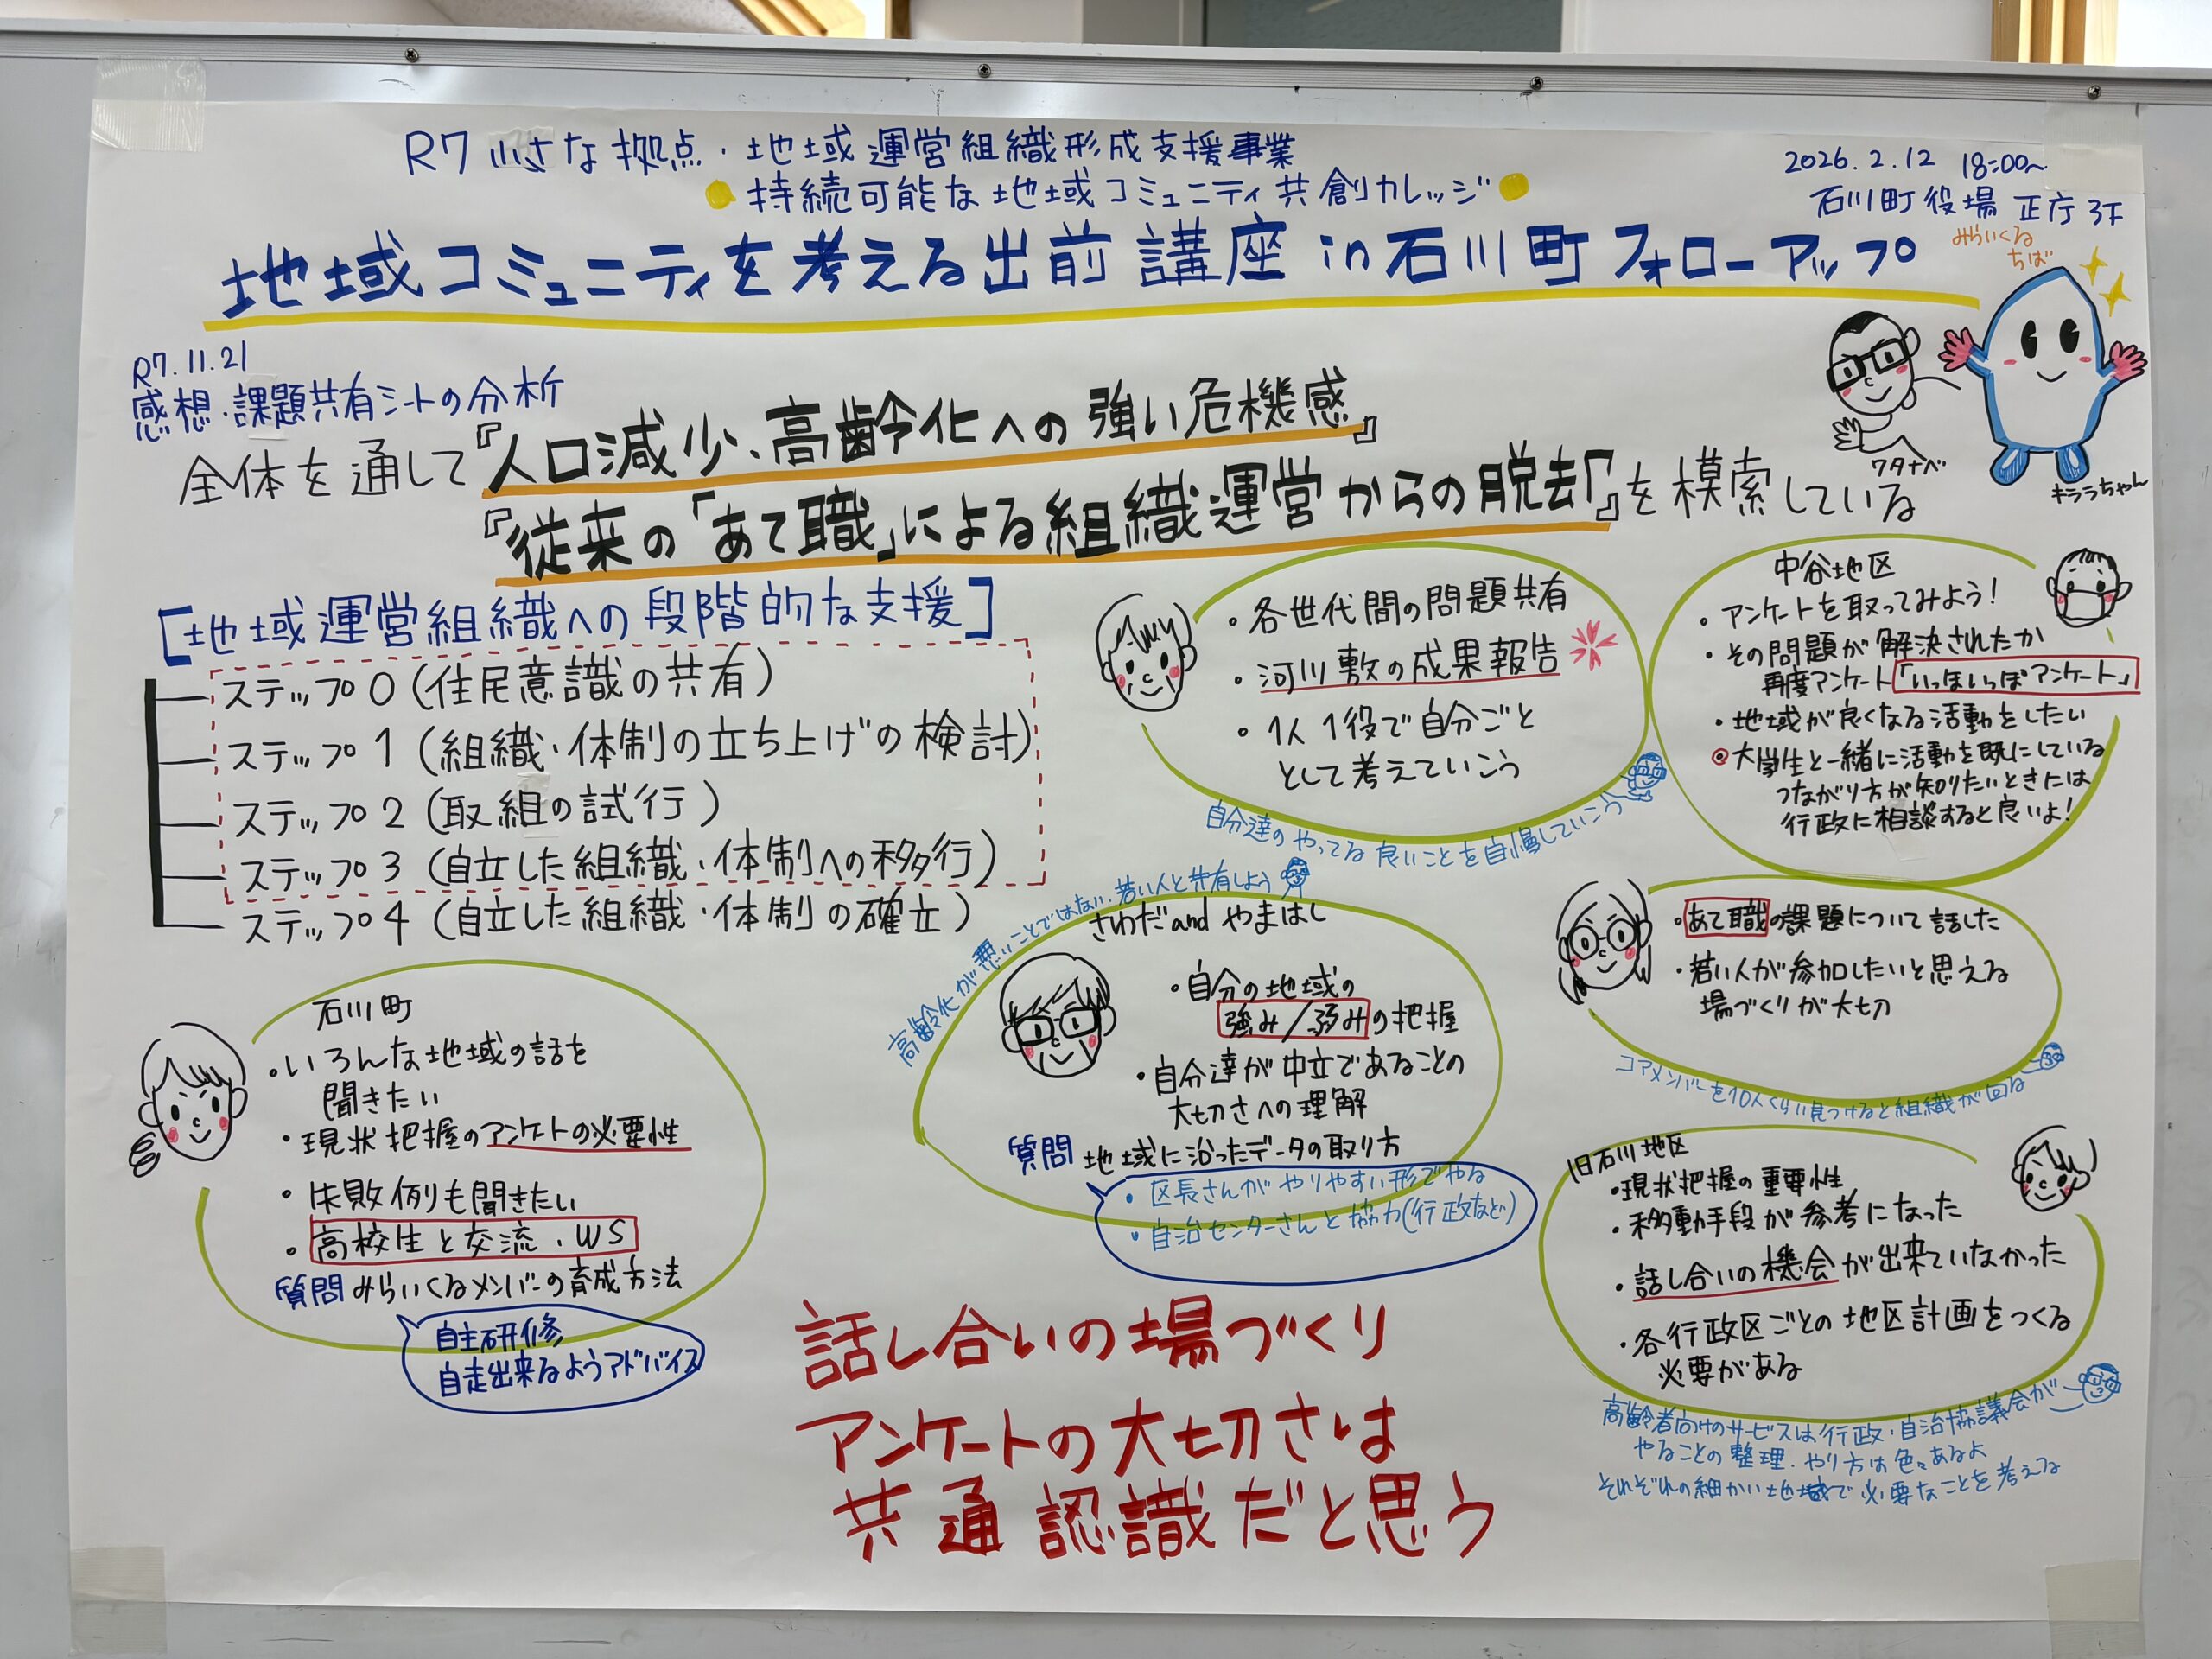 R7 小さな拠点・地域運営組織形成支援事業
持続可能な地域コミュニティ共創カレッジ
2026.2.12 18:00〜
石川町役場 正庁 3F
地域コミュニティを考える出前講座 in 石川町 フォローアップ
みらいくる
ちば
ワタナベ
キララちゃん
R7.11.21
感想・課題共有シートの分析
全体を通して『人口減少、高齢化への強い危機感』
『従来の「あて職」による組織運営からの脱去「』を模索している
[地域運営組織への段階的な支援]
ステップ0(住民意識の共有)
ステップ1(組織・体制の立ち上げの検討)
ステップ2(取組の試行)
ステップ3(自立した組織・体制への移行)
ステップ4(自立した組織・体制の確立)
・各世代間の問題共有
・河川敷の成果報告
・1人1役で自分ごと
として考えていこう
自分達のやってる良いことを自慢していこう
中谷地区
・アンケートを取ってみよう!
・その問題が解決されたか
再度アンケート「いっぽいっぽアンケート」
・地域が良くなる活動をしたい
◎大学生と一緒に活動を既にしている
つながり方が知りたいときには
行政に相談すると良いよ!
高齢化が悪いことではない、若い人と共有しよう
さわだ and やまはし
・自分の地域の
強み/弱みの把握
・自分達が中立であることの
大切さへの理解
質問 地域に沿ったデータの取り方
・区長さんがやりやすい形でやる
・自治センターさんと協力(行政など)
・あて職の課題について話した
・若い人が参加したいと思える
場づくりが大切
コアメンバーを10人くらい見つけると組織が回る
石川町
・いろんな地域の話を
聞きたい
・現状把握のアンケートの必要性
・失敗例も聞きたい
・高校生と交流・WS
質問 みらいくるメンバーの育成方法
自主研修
自走出来るようアドバイス
旧石川地区
・現状把握の重要性
・移動手段が参考になった
・話し合いの機会が出来ていなかった
・各行政区ごとの地区計画をつくる
必要がある
高齢者向けのサービスは行政・自治協議会が
やることの整理、やり方は色々あるよ
それぞれの細かい地域で必要なことを考える
話し合いの場づくり
アンケートの大切さは
共通認識だと思う